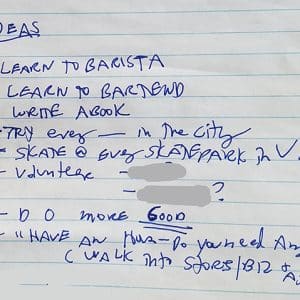 IDEAS
LEARN TO BARISTA
LEARN TO BARTEND
WRITE A BOOK
- TRY every — in The city
- SKATE @ every SKATEPARK in V
- Volunteer -
- ?
- DO MORE GOOD
- "HAVE AN Hour - Do you need An
( WALK into STORES/BIZ &